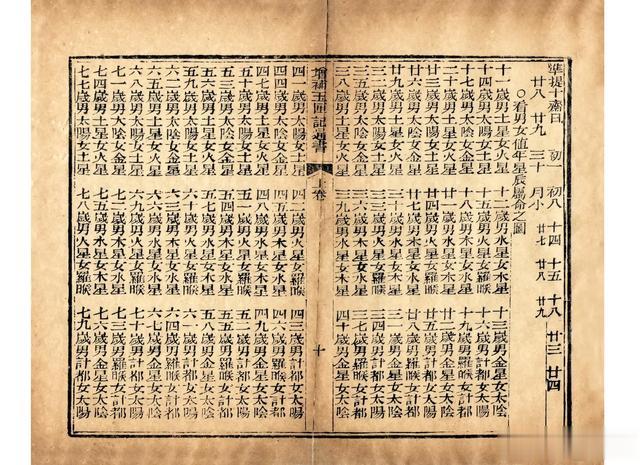 準提十齋日 初一 初八 十四 十五 十八 廿三 廿四
廿八 廿九 三十 月小 廿七 廿八 廿九
○看男女值年星辰屬命之圖
十一歲男土星女火星 十二歲男水星女木星 十三歲男金星女太陰
十四歲男太陽女土星 十五歲男火星女羅睺 十六歲男計都女太陽
十七歲男太陰女金星 十八歲男木星女水星 十九歲男羅睺女計都
二十歲男土星女火星 廿一歲男水星女木星 廿二歲男金星女太陰
廿三歲男太陽女土星 廿四歲男火星女羅睺 廿五歲男計都女太陽
廿六歲男太陰女金星 廿七歲男木星女水星 廿八歲男羅睺女計都
廿九歲男土星女火星 三十歲男水星女木星 三一歲男金星女太陰
三二歲男太陽女土星 三三歲男火星女羅睺 三四歲男計都女太陽
三五歲男太陰女金星 三六歲男木星女水星 三七歲男羅睺女計都
三八歲男土星女火星 三九歲男水星女木星 四十歲男金星女太陰
增補玉匣記通書 上卷 十
四一歲男太陽女土星 四二歲男火星女羅睺 四三歲男計都女太陽
四四歲男太陰女金星 四五歲男木星女水星 四六歲男羅睺女計都
四七歲男土星女火星 四八歲男水星女木星 四九歲男金星女太陰
五十歲男太陽女土星 五一歲男火星女羅睺 五二歲男計都女太陽
五三歲男太陰女金星 五四歲男木星女水星 五五歲男羅睺女計都
五六歲男土星女火星 五七歲男水星女木星 五八歲男金星女太陰
五九歲男太陽女土星 六十歲男火星女羅睺 六一歲男計都女太陽
六二歲男太陰女金星 六三歲男木星女水星 六四歲男羅睺女計都
六五歲男土星女火星 六六歲男水星女木星 六七歲男金星女太陰
六八歲男太陽女土星 六九歲男火星女羅睺 七十歲男計都女太陽
七一歲男太陰女金星 七二歲男木星女水星 七三歲男羅睺女計都
七四歲男土星女火星 七五歲男水星女木星 七六歲男金星女太陰
七七歲男太陽女土星 七八歲男火星女羅睺 七九歲男計都女太陽